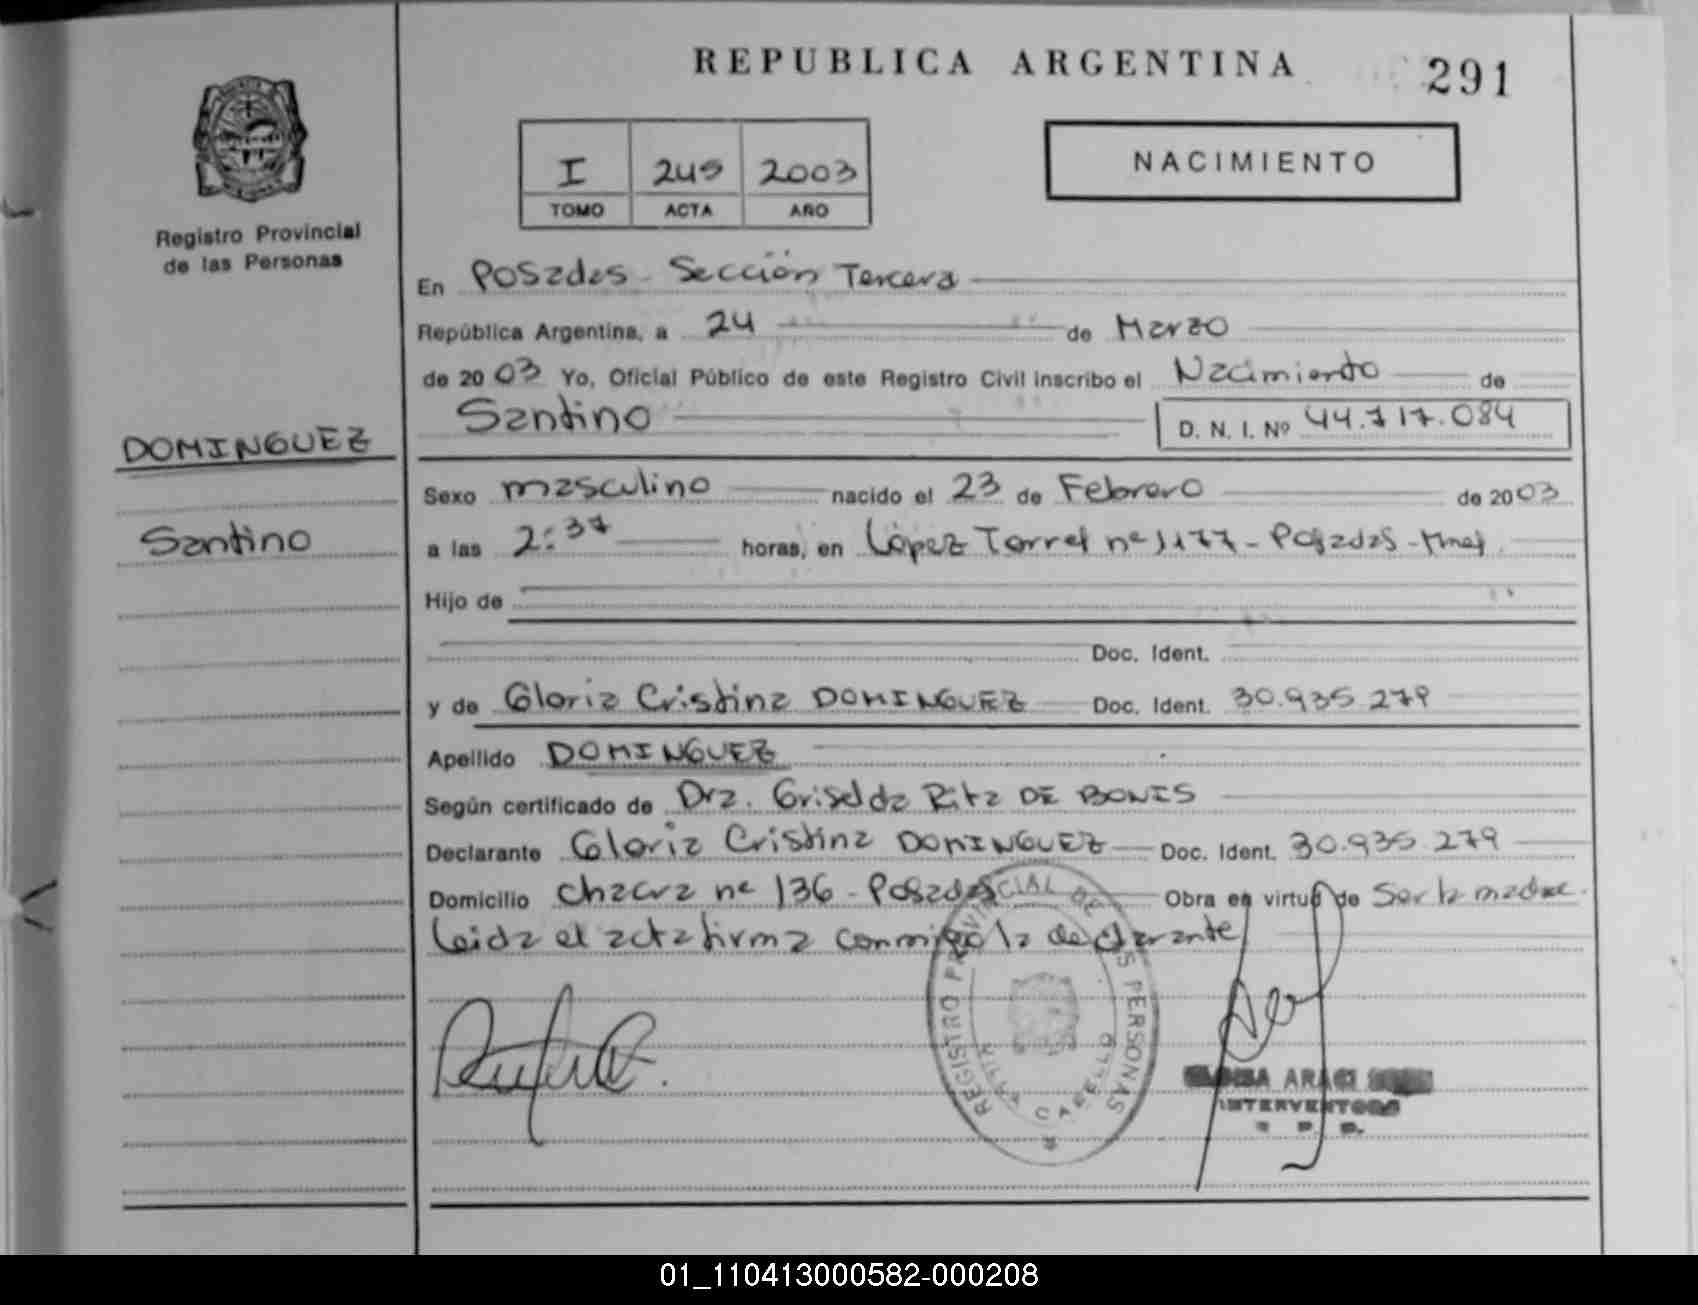 REPUBLICA ARGENTINA
291
Registro Provincial
de las Personas
I 245 2003
TOMO ACTA AÑO
NACIMIENTO
En Posadas - Sección Tercera
República Argentina, a 24 de Marzo
de 2003 Yo, Oficial Público de este Registro Civil inscribo el Nacimiento de
Santino
D. N. I. Nº 44.717.084
DOMINGUEZ
Santino
Sexo masculino nacido el 23 de Febrero de 2003
a las 2:37 horas, en López Torres nº 1177 - Posadas - Mnes.
Hijo de
Doc. Ident.
y de Gloria Cristina DOMINGUEZ Doc. Ident. 30.935.279
Apellido DOMINGUEZ
Según certificado de Dra. Griselda Rita DE BONIS
Declarante Gloria Cristina DOMINGUEZ Doc. Ident. 30.935.279
Domicilio Chacra nº 136 - Posadas Obra en virtud de Ser la madre.
Leida el acta firma conmigo la declarante
REGISTRO PROVINCIAL DE LAS PERSONAS
CABELLO
ARACI
INTERVENTORA
01_110413000582-000208